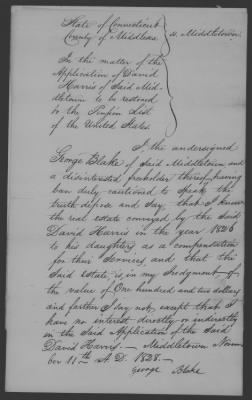 State of Connecticut
County of Middlesex
ss. Middletown
In the matter of the
Application of David
Harris of Said Mid-
dletown to be restored
to the Pension List
of the United States.
I the undersigned
George Blake of Said Middletown and
a disinterested freeholder thereof having
been duly cautioned to Speak the
truth depose and Say, that I know
the real estate conveyed by the Said
David Harris in the year 1826
to his daughters as a compensation
for their Services, and that the
Said estate, is in my Judgment of
the value of One hundred and two dollars
and farther I say not, except that I
have no interest directly or indirectly
in the Said Application of the Said
David Harris. — Middletown Novem-
ber 11th A. D. 1828. —
George Blake